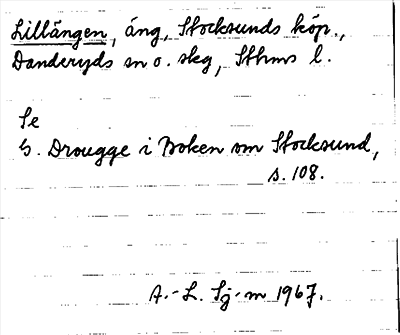 Lillängen, äng, Stocksunds köp.,
Danderyds sn o. skg, Sthms l.
Se
G. Drougge i Boken om Stocksund,
s. 108.
A.-L. Sj-m 1967.